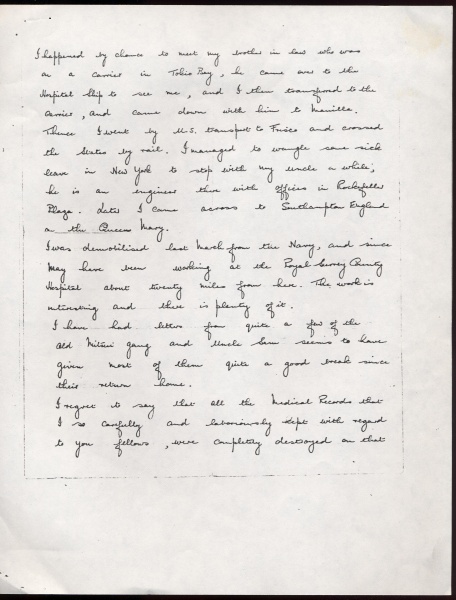 I happened by chance to meet my brother in law who was
on a carrier in Tokio Bay, he came over to the
Hospital Ship to see me, and I then transferred to the
carrier, and came down with him to Manilla.
Thence I went by U.S. transport to Frisco and crossed
the States by rail. I managed to wangle some sick
leave in New York to stop with my uncle a while;
he is an engineer there with offices in Rockefeller
Plaza. Later I came across to Southampton England
on the Queen Mary.
I was demobilised last March from the Navy, and since
May have been working at the Royal Surrey County
Hospital about twenty miles from here. The work is
interesting and there is plenty of it.
I have had letters from quite a few of the
old Mitsui gang and Uncle Sam seems to have
given most of them quite a good break since
their return home.
I regret to say that all the Medical Records that
I so carefully and laboriously kept with regard
to you fellows, were completely destroyed on that